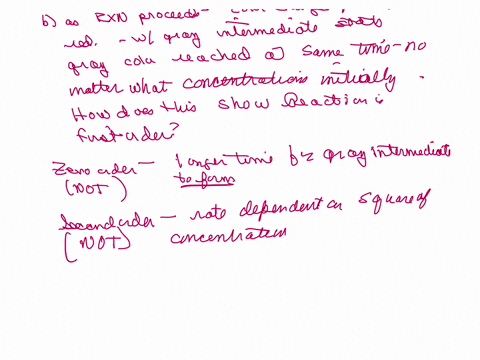 b) as RXN proceeds - color changes,
red. - w/ gray intermediate
gray color reached at same time - no
matter what concentrations initially.
How does this show Reaction is
first order?
Zero order - longer time for gray intermediate
(NOT) to form
Second order - rate dependent on square of
(NOT) concentration